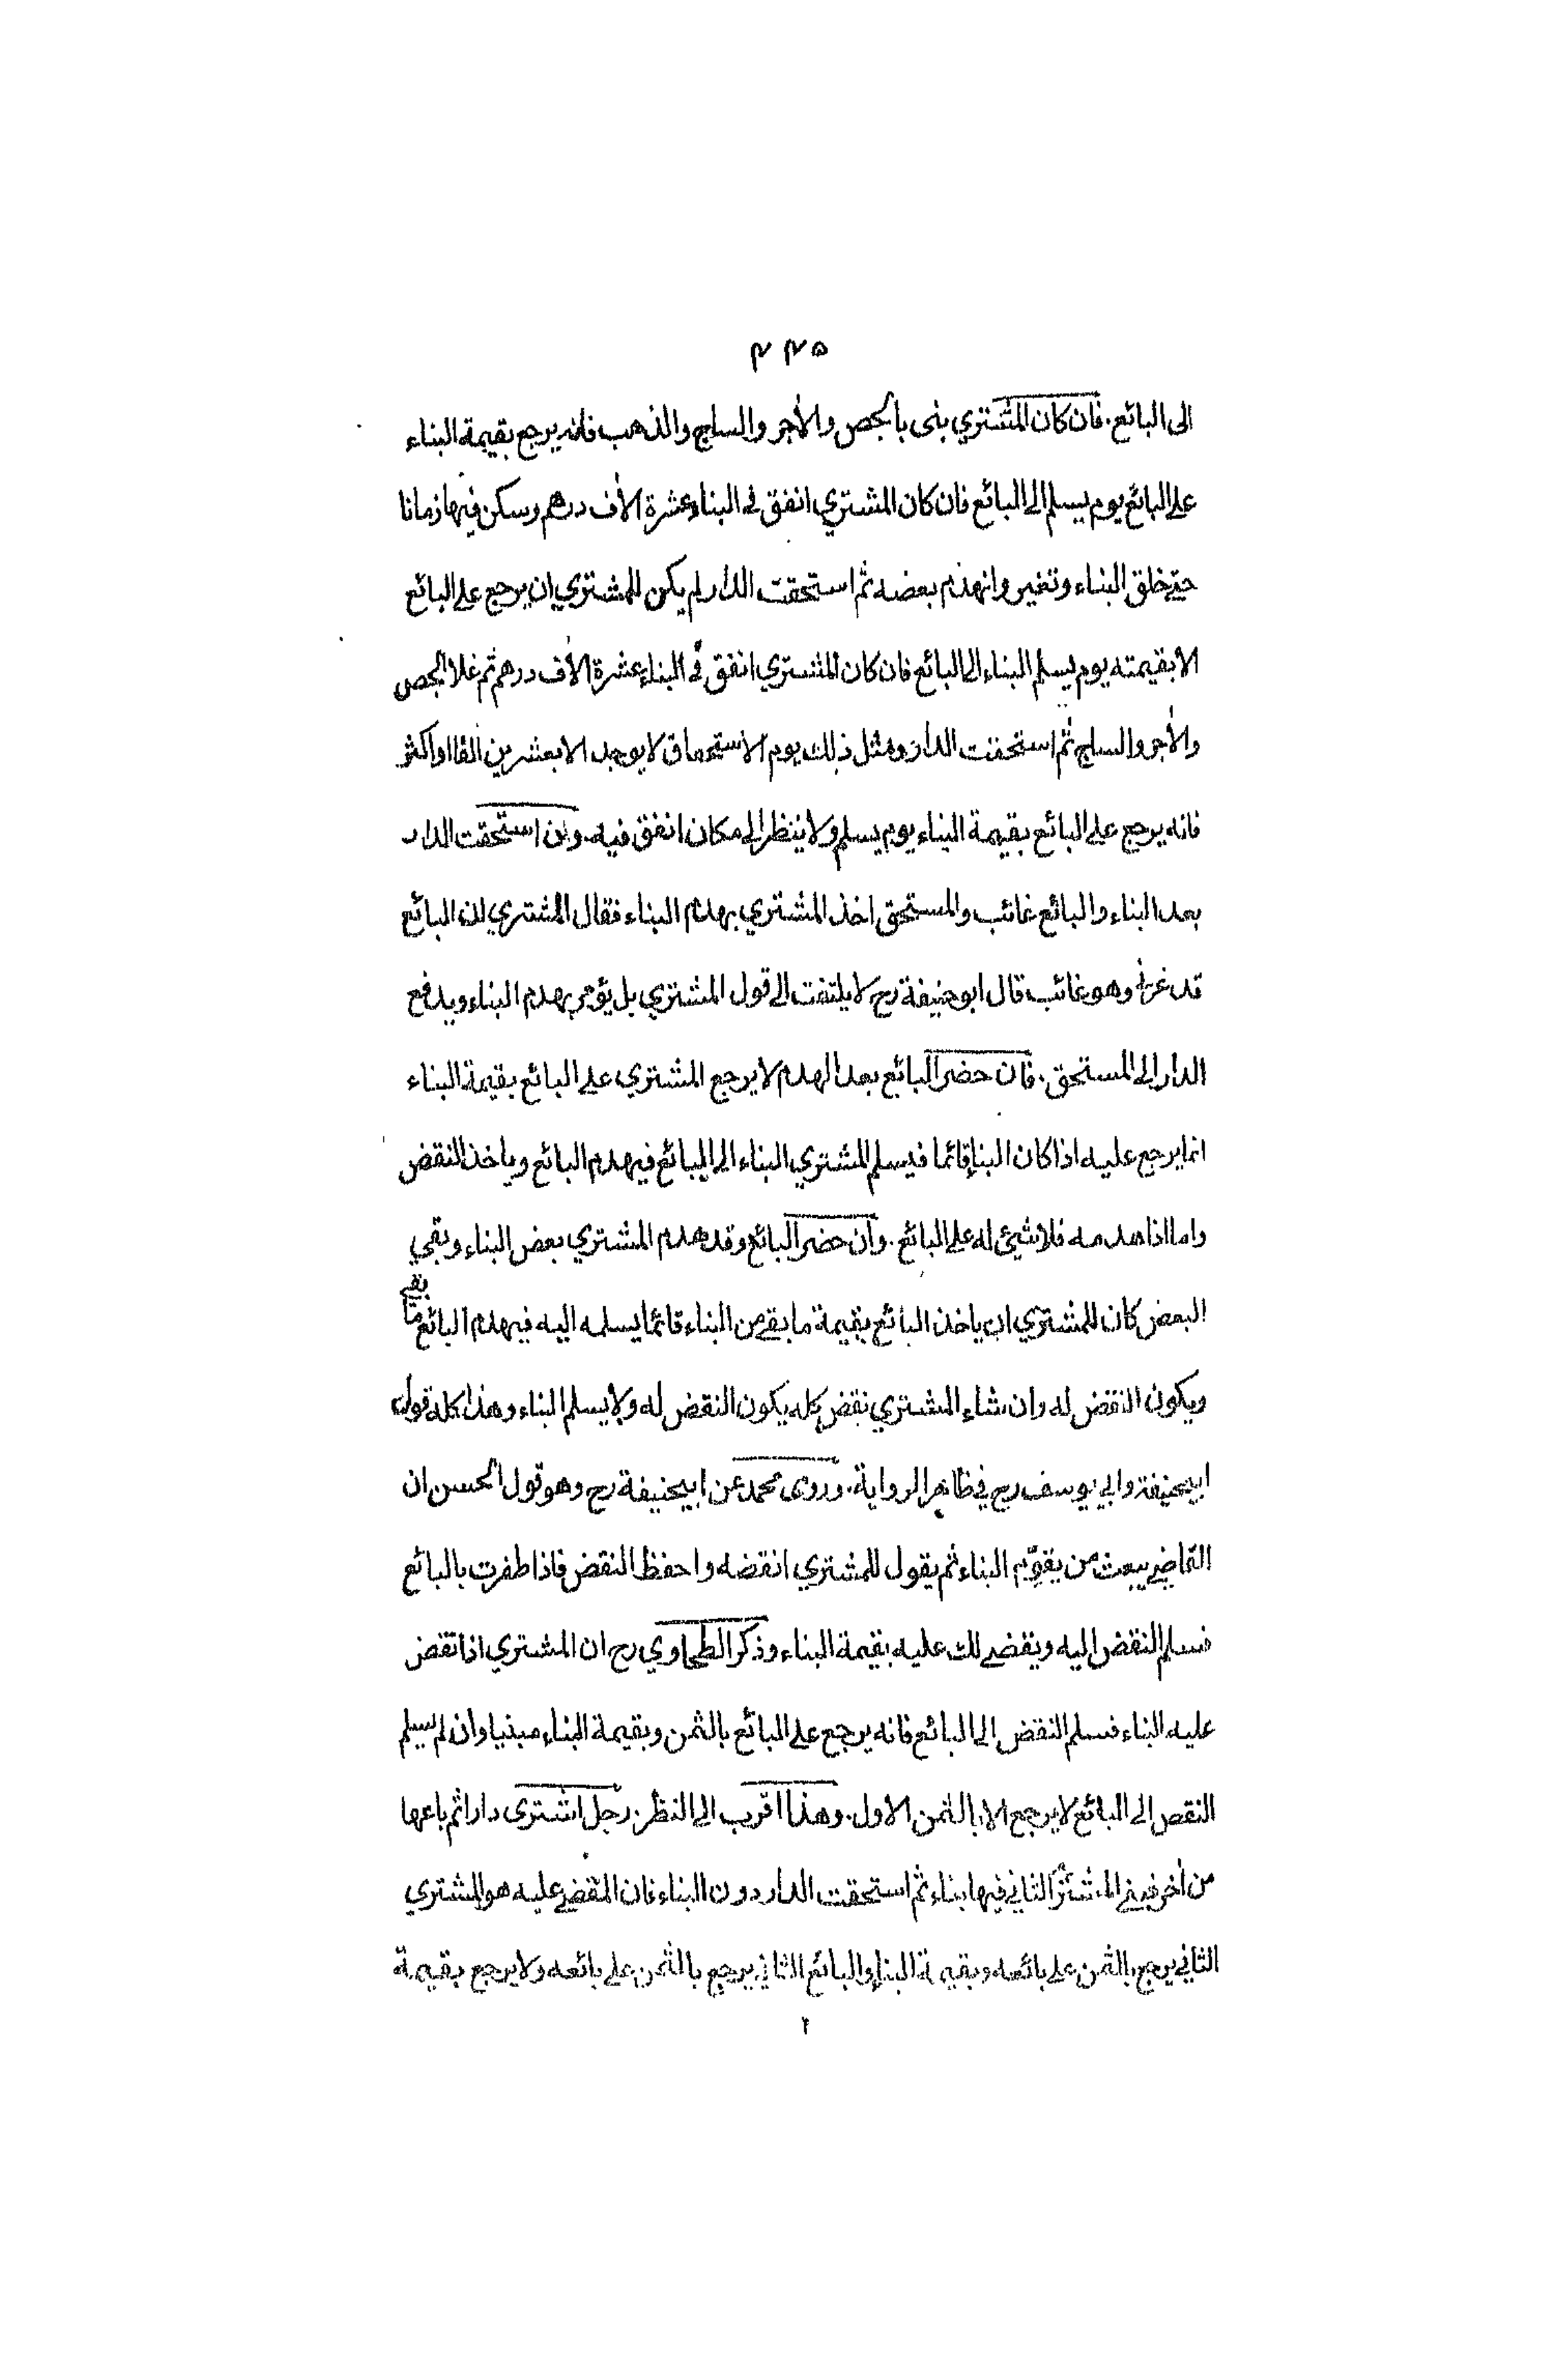 ٢٢٥
الى البائع. فان كان المشتري بنى بالجص والأجر والساج والذهب فانه يرجع بقيمة البناء
على البائع يوم يسلم الى البائع فان كان المشتري انفق في البناء عشرة الأف درهم وسكن فيها زمانا
حتى خلق البناء وتغير وانهدم بعضه ثم استحقت الدار لم يكن للمشتري ان يرجع على البائع
الا بقيمته يوم يسلم البناء الى البائع فان كان المشتري انفق في البناء عشرة الأف درهم ثم غلا الجص
والأجر والساج ثم استحقت الدار ومثل ذلك يوم الاستحقاق لا يوجد الا بعشرين الفا او اكثر
فانه يرجع على البائع بقيمة البناء يوم يسلم ولا ينظر الى مكان انفق فيه. وان استحقت الدار
بعد البناء والبائع غائب والمستحق اخذ المشتري بهدم البناء فقال المشتري ان البائع
قد غرني وهو غائب قال ابو حنيفة رح لا يلتفت الى قول المشتري بل يؤمر بهدم البناء ويدفع
الدار الى المستحق. فان حضر البائع بعد الهدم لا يرجع المشتري على البائع بقيمة البناء
انما يرجع عليه اذا كان البناء قائما فيسلم المشتري البناء الى البائع فيهدم البائع وياخذ النقض
واما اذا هدمه فلا شيئ له على البائع. وان حضر البائع وقد هدم المشتري بعض البناء وبقي
البعض كان للمشتري ان ياخذ البائع بقيمة ما بقي من البناء قائما يسلمه اليه فيهدم البائع ما بقي
ويكون النقض له وان شاء المشتري نقض كله يكون النقض له ولا يسلم البناء وهذا كله قول
ابيحنيفة وابي يوسف رح في ظاهر الرواية. وروى محمد عن ابيحنيفة رح وهو قول الحسن ان
القاضي يبعث من يقوّم البناء ثم يقول للمشتري انقضه واحفظ النقض فاذا ظفرت بالبائع
فسلم النقض اليه ويقضي لك عليه بقيمة البناء وذكر الطحاوي رح ان المشتري اذا نقض
عليه البناء فسلم النقض الى البائع فانه يرجع على البائع بالثمن وبقيمة البناء مبنيا وان لم يسلم
النقص الى البائع لا يرجع الا بالثمن الاول. وهذا اقرب الى النظر. رجل اشترى دارا ثم باعها
من أخر فبنى المشترى الثاني فيها بناء ثم استحقت الدار دون البناء فان المقضي عليه هو المشتري
الثاني يرجع بالثمن على بائعه وبقيمة البناء والبائع الثاني يرجع بالثمن على بائعه ولا يرجع بقيمة